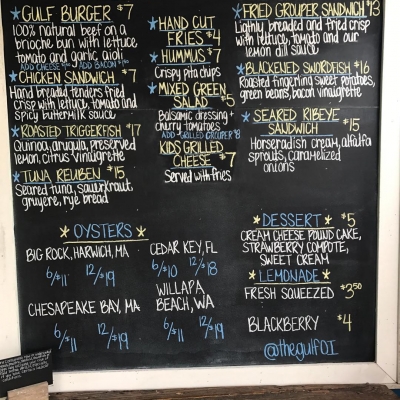 GULF BURGER $7
100% natural beef on a
brioche bun with lettuce,
tomato and garlic aioli
ADD CHEESE $1 ADD BACON $1
CHICKEN SANDWICH $7
Hand breaded tenders fried
crisp with lettuce, tomato and
spicy buttermilk sauce
ROASTED TRIGGERFISH $17
Quinoa, arugula, preserved
lemon, citrus vinaigrette
TUNA REUBEN $15
Seared tuna, sauerkraut,
gruyere, rye bread
HAND CUT
FRIES $4
HUMMUS $7
Crispy pita chips
MIXED GREEN
SALAD $5
Balsamic dressing +
cherry tomatoes
ADD GRILLED GROUPER $8
KIDS GRILLED
CHEESE $7
Served with fries
FRIED GROUPER SANDWICH $13
Lightly breaded and fried crisp
with lettuce, tomato and our
lemon dill sauce
BLACKENED SWORDFISH $16
Roasted fingerling sweet potatoes,
green beans, bacon vinaigrette
SEARED RIBEYE
SANDWICH $15
Horseradish cream, alfalfa
sprouts, caramelized
onions
OYSTERS
BIG ROCK, HARWICH, MA
6/$11 12/$19
CHESAPEAKE BAY, MA
6/$11 12/$19
CEDAR KEY, FL
6/$10 12/$18
WILLAPA
BEACH, WA
6/$11 12/$19
DESSERT $5
CREAM CHEESE POUND CAKE,
STRAWBERRY COMPOTE,
SWEET CREAM
LEMONADE
FRESH SQUEEZED $3.50
BLACKBERRY $4
@thegulfOI